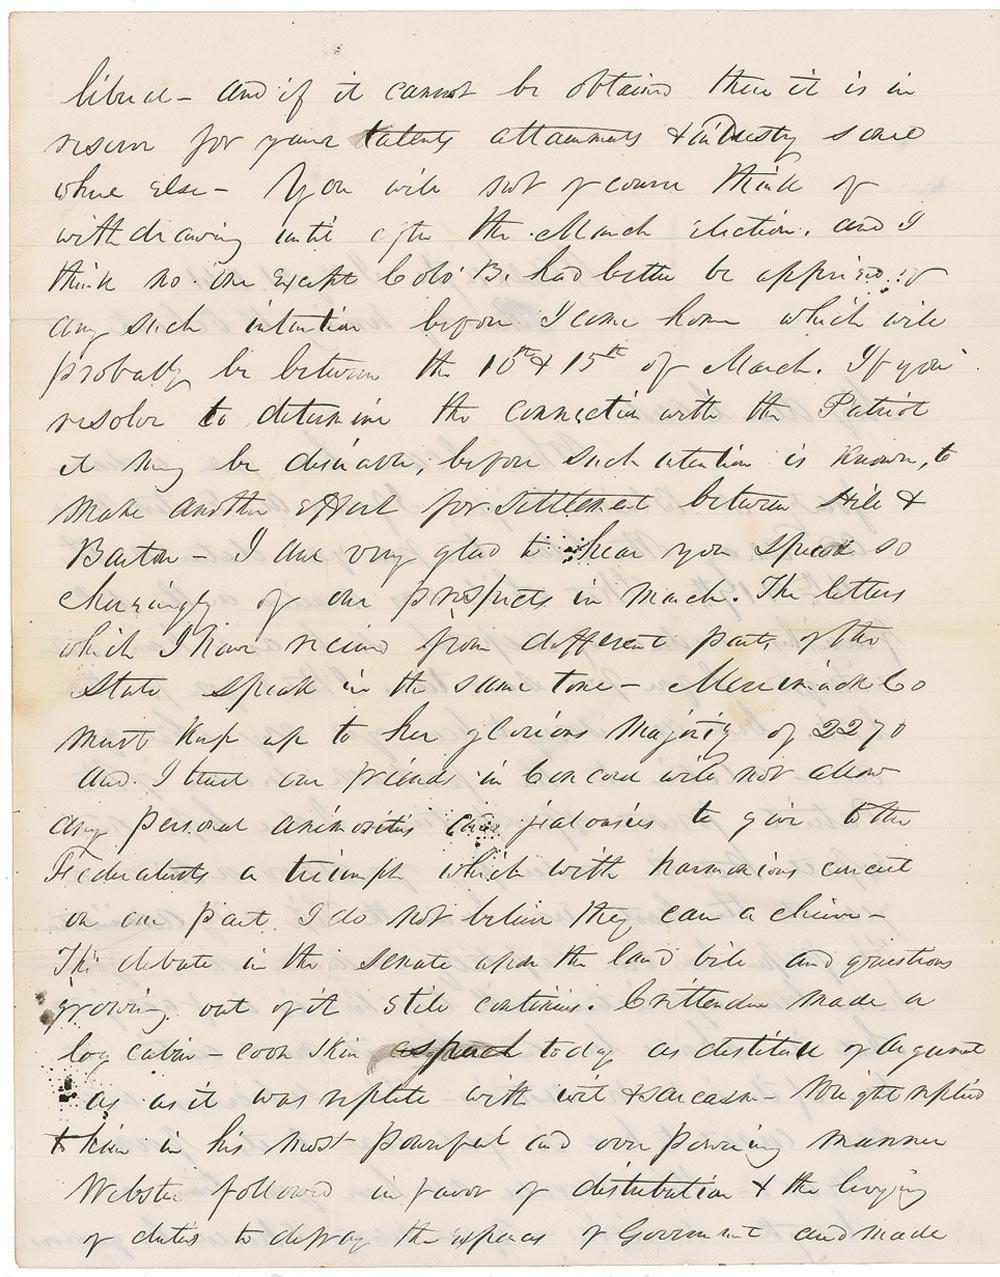 liberal – and if it cannot be obtained there it is in
reserve for your talents attainments & industry some
where else – You will not of course think of
withdrawing until after the March election. and I
think no one except Colo B. had better be apprised of
any such intention before I come home which will
probably be between the 10th & 15th of March. If you
resolve to determine the connection with the Patriot
it may be desirable, before such intention is known, to
make another effort for settlement between Hill &
Barton – I am very glad to hear you speak so
cheeringly of our prospects in March. The letters
which I have received from different parts of the
State speak in the same tone – Merrimack Co
must keep up to her glorious majority of 2270
and I trust our friends in Concord will not allow
any personal animosities and jealousies to give to the
Federalists a triumph which with harmonious concert
on our part I do not believe they can achieve –
The debate in the Senate upon the land bill and questions
growing out of it still continues. Crittenden made a
log cabin – coon skin speech today as destitute of argument
as it was replete with wit & sarcasm – Wright replied
to him in his most powerful and over powering manner
Webster followed in favor of distribution & the levying
of duties to defray the expenses of Government and made